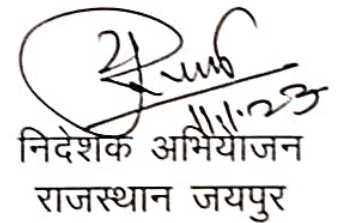 11.1.23
निदेशक अभियोजन
राजस्थान जयपुर